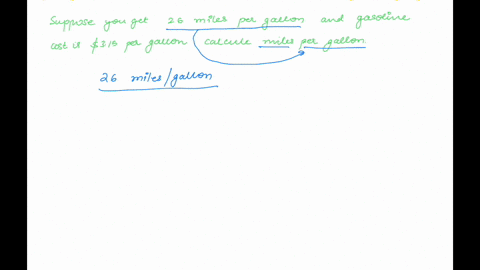 Suppose you get 26 miles per gallon and gasoline
cost is $3.15 per gallon calcule miles per gallon
26 miles/gallon